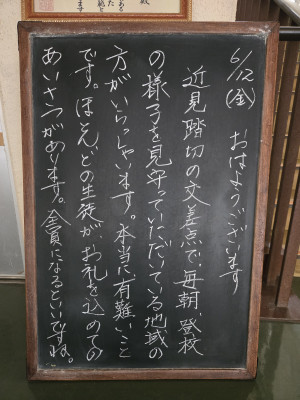 6/12(金) おはようございます
近見踏切の交差点で、毎朝、登校
の様子を見守っていただいている地域の
方がいらっしゃいます。本当に有難いこと
です。ほとんどの生徒が、お礼を込めての
あいさつがあります。全員になるといいですね。